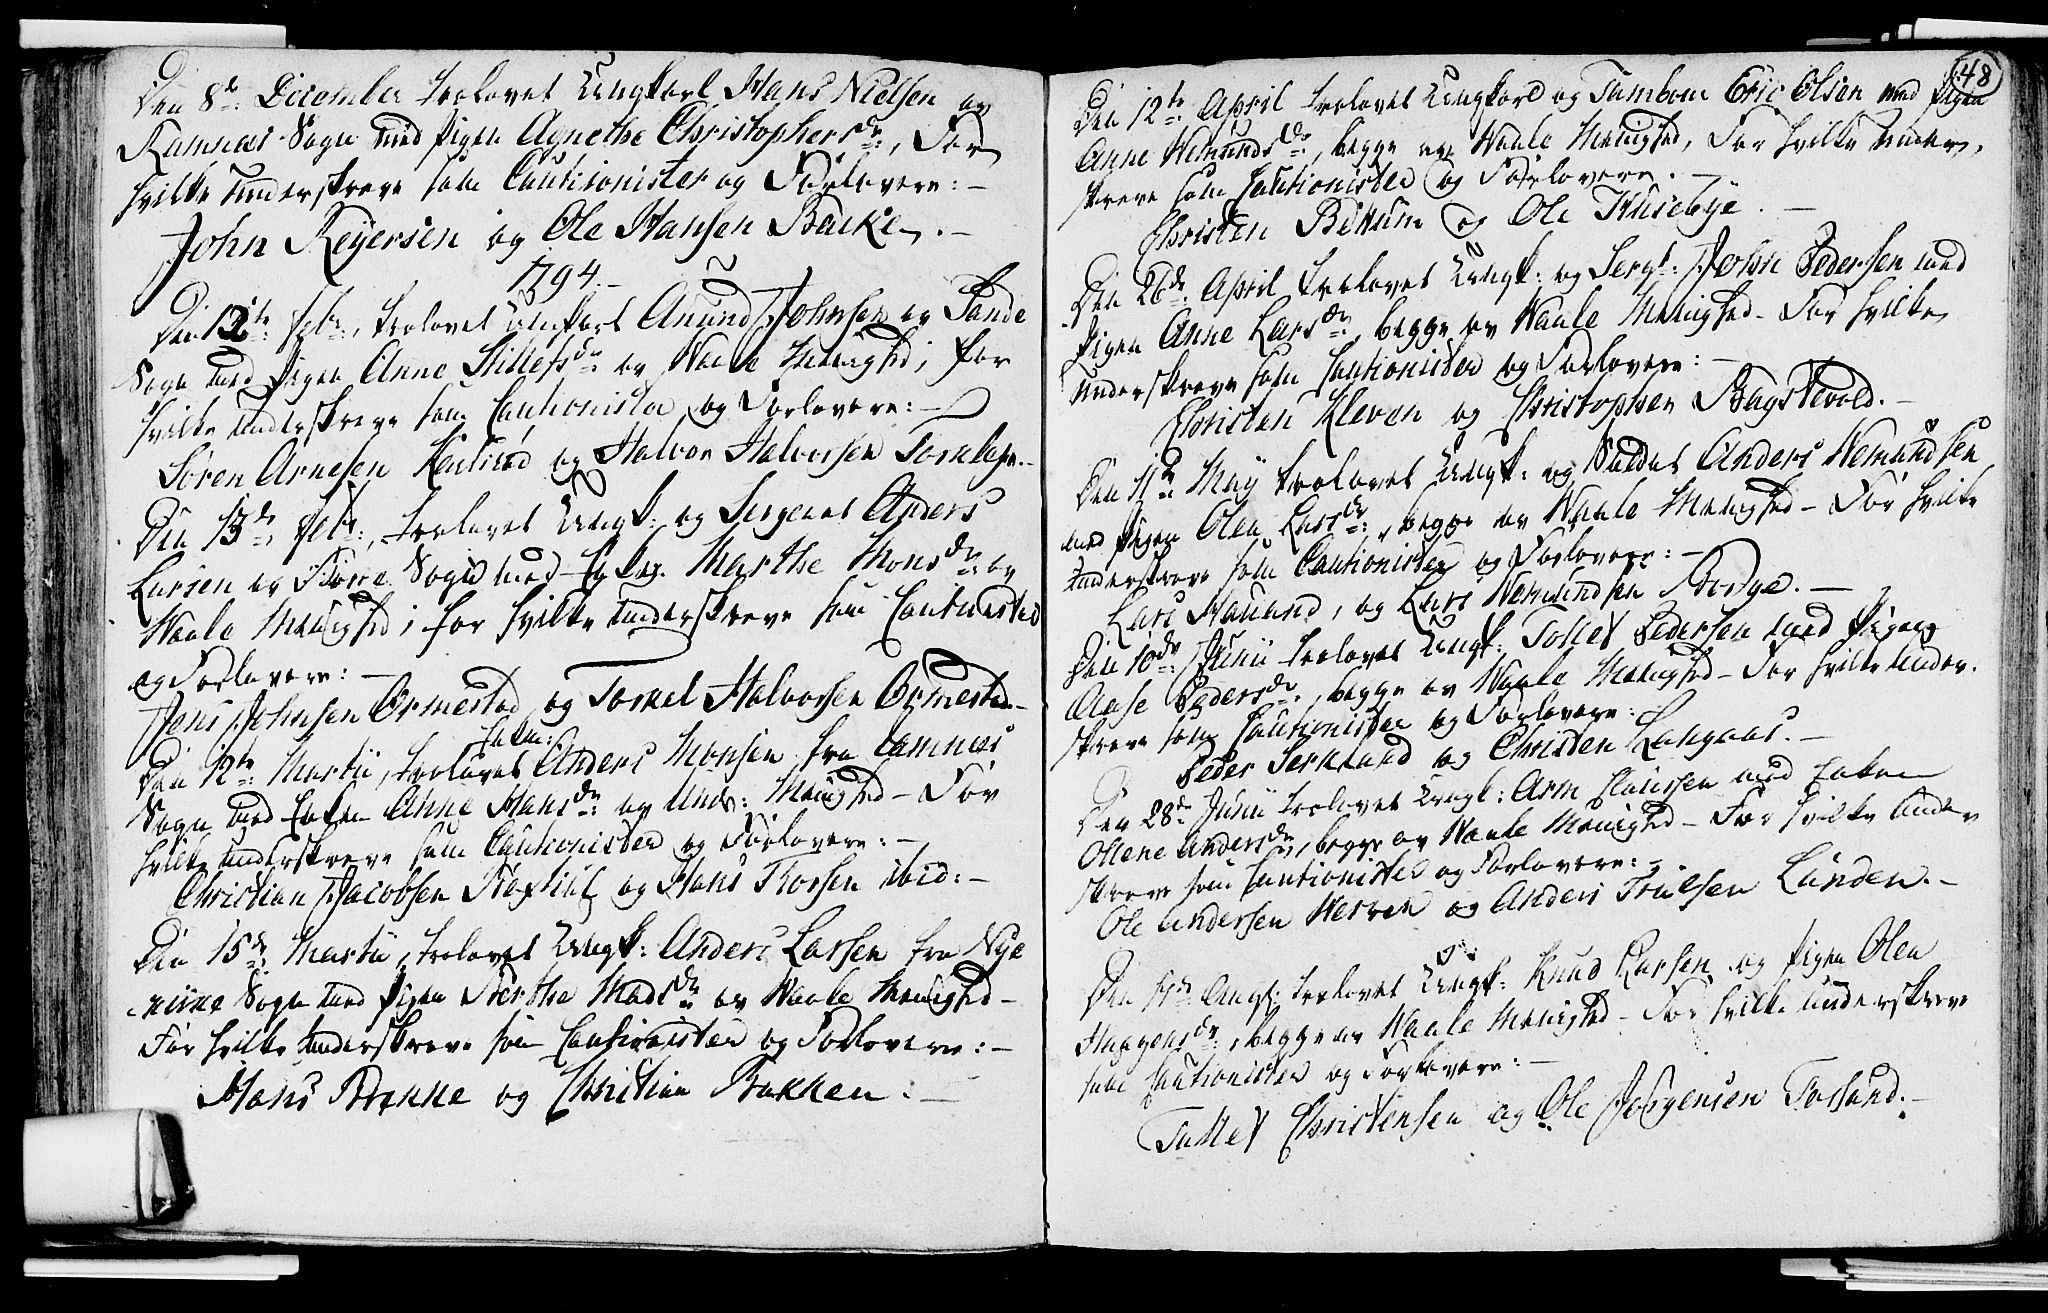 Den 8de December trolovet Ungkarl Hans Nielsen av
Ramnes Sogn med Pigen Agnethe Christophersdr:, For
hvilke underskreve som Cautionister og Forlovere: –
John Reyersen og Ole Hansen Backe. –
1794. –
Den 12te Febr:, trolovet Ungkarl Anund Johnsen av Sande
Sogn med Pigen Anne dr: av Waale Menighed, for
hvilke underskreve som Cautionister og Forlovere: –
Sören Arnesen og Halvor Halvorsen
Den 13de Feb:, trolovet Ungk: og Sergeant Anders
Larsen av Sogn med Marthe Monsdr: av
Waale Menighed; for hvilke underskreve som Cautionister
og Forlovere: –
Jens Johnsen Ormestad og Torkel Halvorsen Ormestad –
Den 12te Martii, trolovet Enkem: Anders Monsen fra Ramnes
Sogn med Enken Anne Hansdr: av Unds: Menighed – For
hvilke underskreve som Cautionister og Forlovere: –
Christian Jacobsen og Hans Thorsen ibid: –
Den 15de Martii, trolovet Ungk: Anders Larsen fra Nye
Sogn med Pigen Berthe Madsdr: av Waale Menighed –
For hvilke underskreve som Cautionister og Forlovere: –
Hans Brekke og Christian Bakken. –
48
Den 12te April trolovet Ungkarl og Tambour Eric Olsen med Pigen
Anne Wemundsdr:, begge av Waale Menighed, For hvilke under-
skreve som Cautionister og Forlovere. –
Christen Bettum og Ole Husebye. –
Den 26de April trolovet Ungk: og Sergt: John Pedersen med
Pigen Anne Larsdr: begge av Waale Menighed – For hvilke
underskreve som Cautionister og Forlovere: –
Christen Kleven og Christopher Bagstevold. –
Den 11te May trolovet Ungk: og Soldat Anders Wemundsen
med Pigen Olea Larsdr:, begge av Waale Menighed – For hvilke
underskreve som Cautionister og Forlovere: –
Lars Hauand, og Lars Wemundsen Borge. –
Den 10de Junii trolovet Ungk: Tollef Pedersen med Pigen
Aase Pedersdr:, begge av Waale Menighed – For hvilke under-
skreve som Cautionister og Forlovere:
Peder Serkland og Christen Langaas. –
Den 28de Junii trolovet Ungk: Arn Claussen med Enken
Ollene Andersdr:, begge av Waale Menighed – For hvilke under
skreve som Cautionister og Forlovere: –
Ole Andersen Werven og Anders Trulsen Lunden. –
Den Aug: trolovet Ungk: Knud Larsen og Pigen Olea
Haagensdr:, begge av Waale Menighed – For hvilke underskreve
som Cautionister og Forlovere: –
Tollef Christensen og Ole Jörgensen Forsund. –